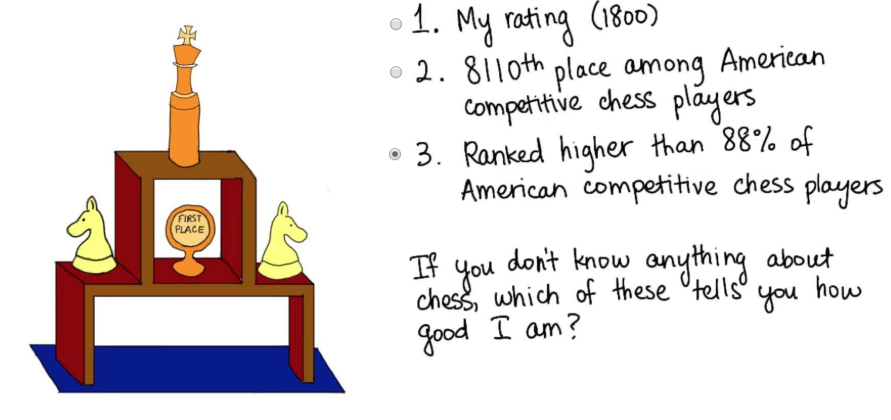 FIRST
PLACE
1. My rating (1800)
2. 8110th place among American
competitive chess players
3. Ranked higher than 88% of
American competitive chess players
If you don't know anything about
chess, which of these "tells" you how
good I am?